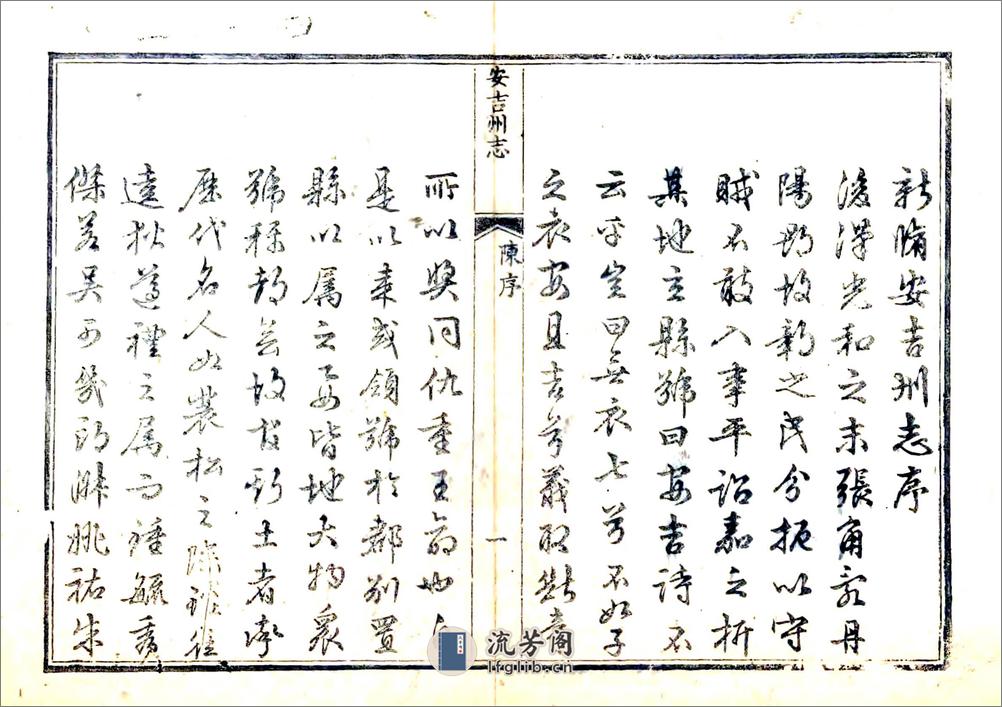 新脩安吉州志序
漢光和之末張角亂丹
陽鄣故鄣之民分扼以守
賊不敢入事平詔嘉之析
其地立縣號曰安吉詩不
云乎豈曰無衣七兮不如子
之衣安且吉兮義取
所以獎同仇重王命也
是以來或領號於都別置
縣以屬之要皆地大物眾
號稱都會故官斯土者
歷代名人如裴松之陳
遠狄遵禮之屬而鍾毓秀
傑若吳均幾朗姚祐朱
安吉州志
陳序
一
流芳阁
lfglib.cn